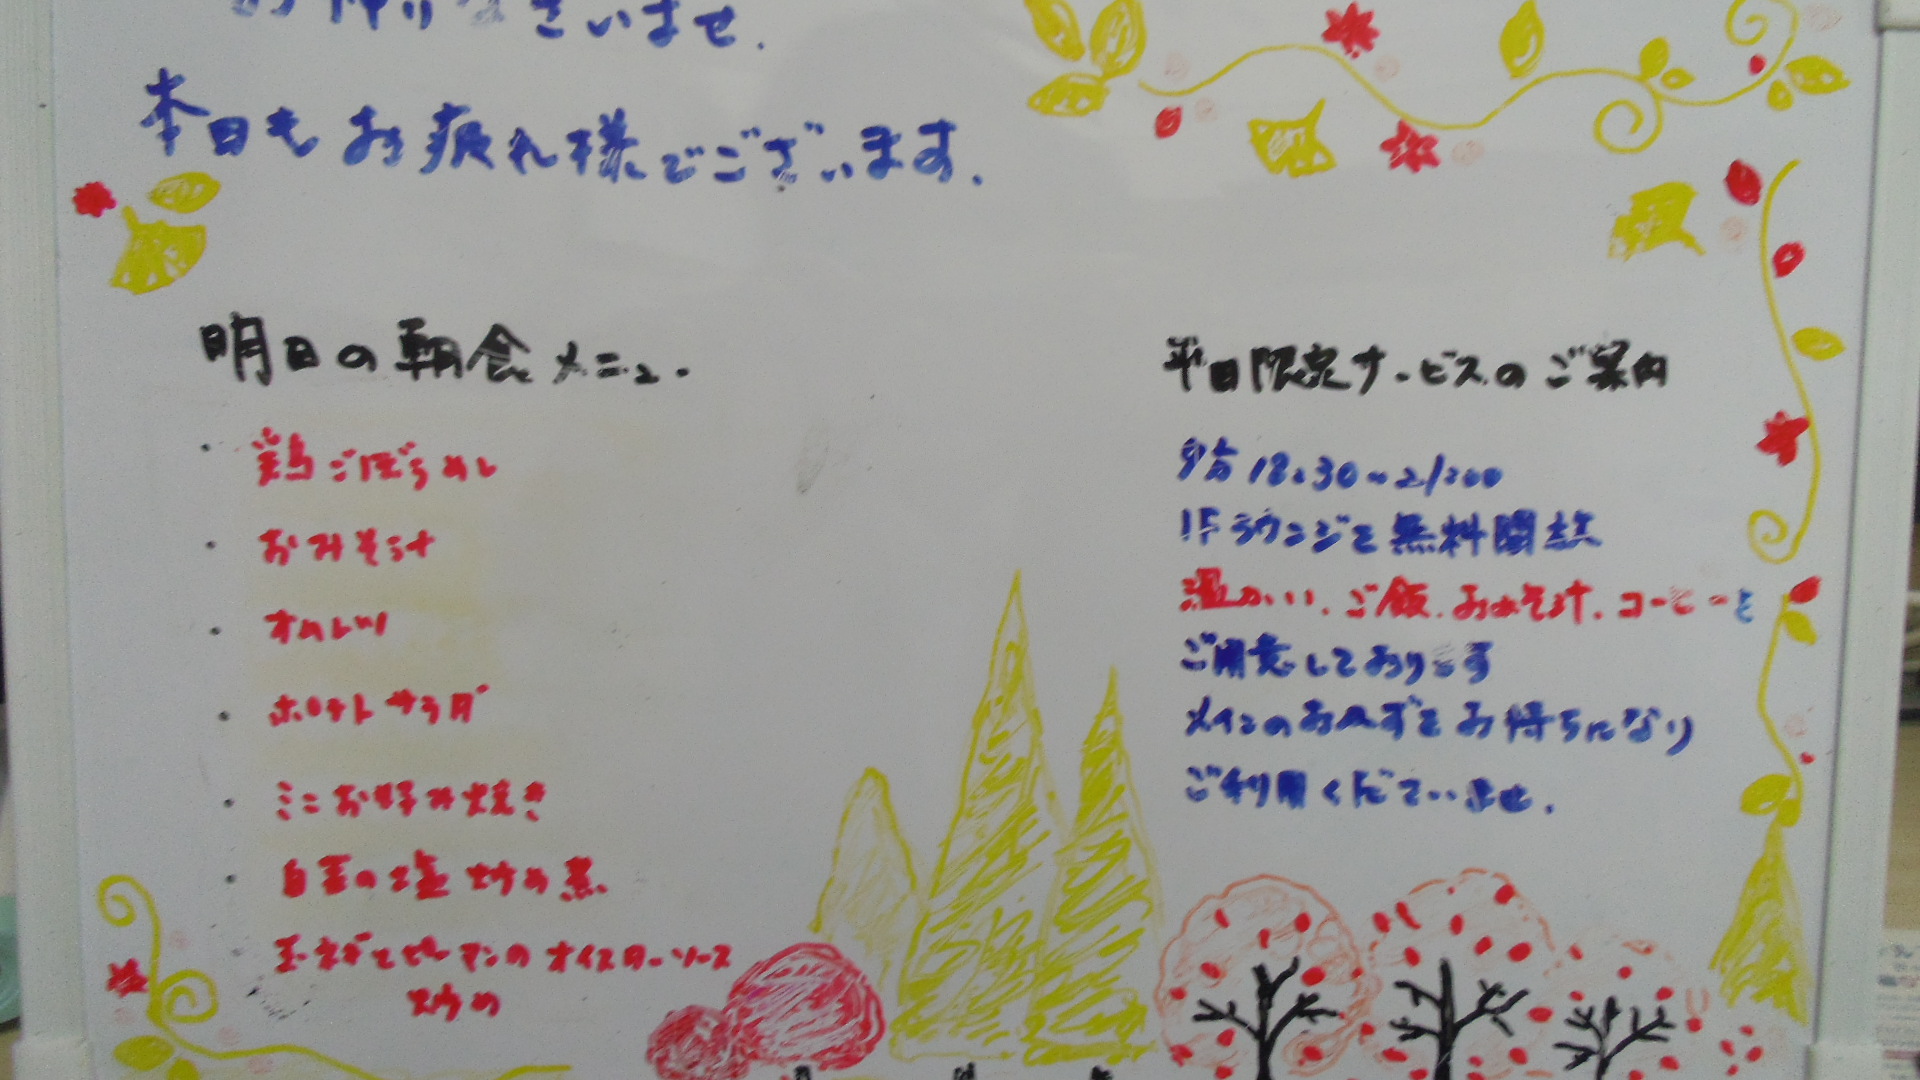 お帰りなさいませ.
本日もお疲れ様でございます.
明日の朝食メニュー.
・鶏ごぼうめし
・おみそ汁
・オムレツ
・ポテトサラダ
・ミニお好み焼き
・白玉の塩炒め煮
・玉ネギとピーマンのオイスターソース
炒め
平日限定サービスのご案内
夕方 18:30~21:00
1Fラウンジを無料開放
温かい、ご飯.おみそ汁.コーヒーを
ご用意しております
メインのおかずをお持ちになり
ご利用くださいませ.